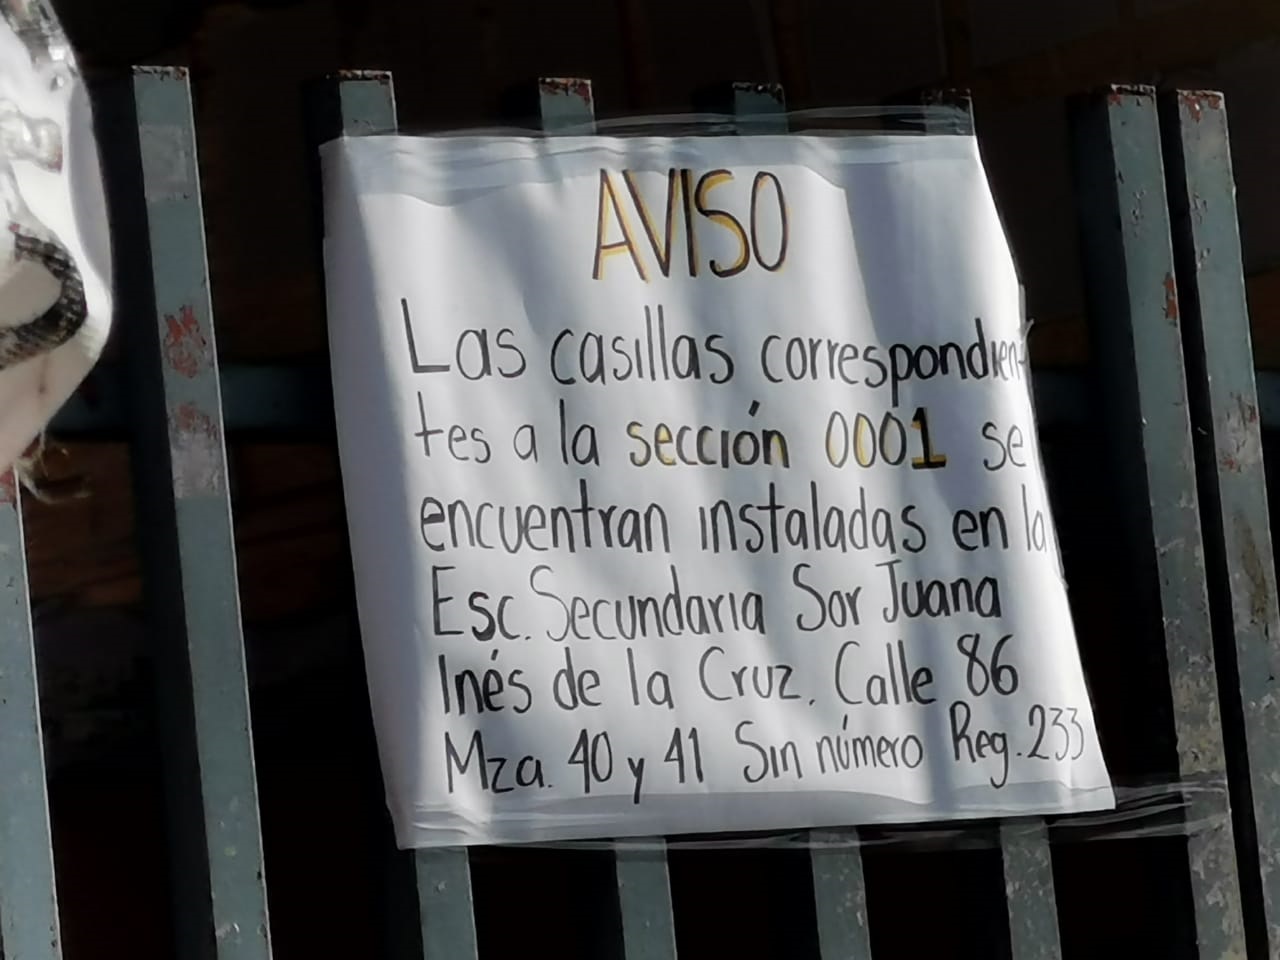 AVISO
Las casillas correspondien-
tes a la sección 0001 se
encuentran instaladas en la
Esc. Secundaria Sor Juana
Inés de la Cruz. Calle 86
Mza. 40 y 41 Sin número Reg. 233